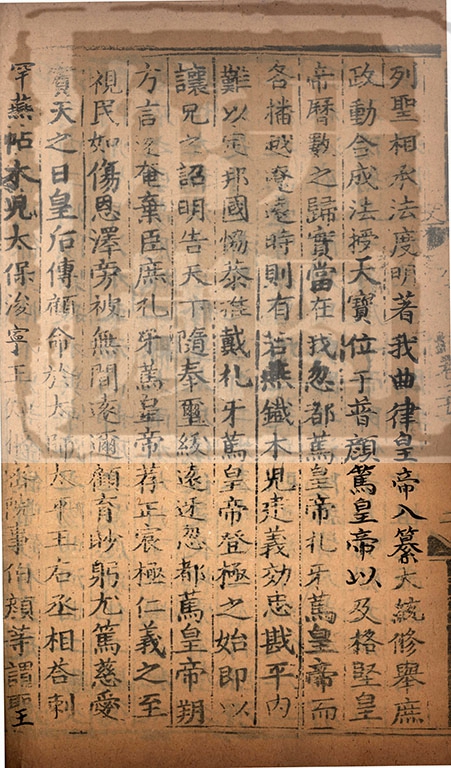 列聖相承法度明著我曲律皇帝入纂大統修舉庶
政動合成法授天寶位于普顔篤皇帝以及格堅皇
帝曆數之歸實當在我忽都篤皇帝札牙篤皇帝而
各播越遼遠時則有若燕鐵木児建義効忠戡平内
難以定邦國協恭推戴札牙篤皇帝登極之始即以
讓兄之詔明告天下隨奉璽紱遠迓忽都篤皇帝朔
方言還奄棄臣庶札牙篤皇帝荐正宸極仁義之至
視民如傷恩澤旁被無間遠邇顧育眇躬尤篤慈愛
賓天之日皇后傳顧命於太師太平王右丞相荅剌
罕燕帖木児太保浚寧王知樞密院事伯顔等謂聖